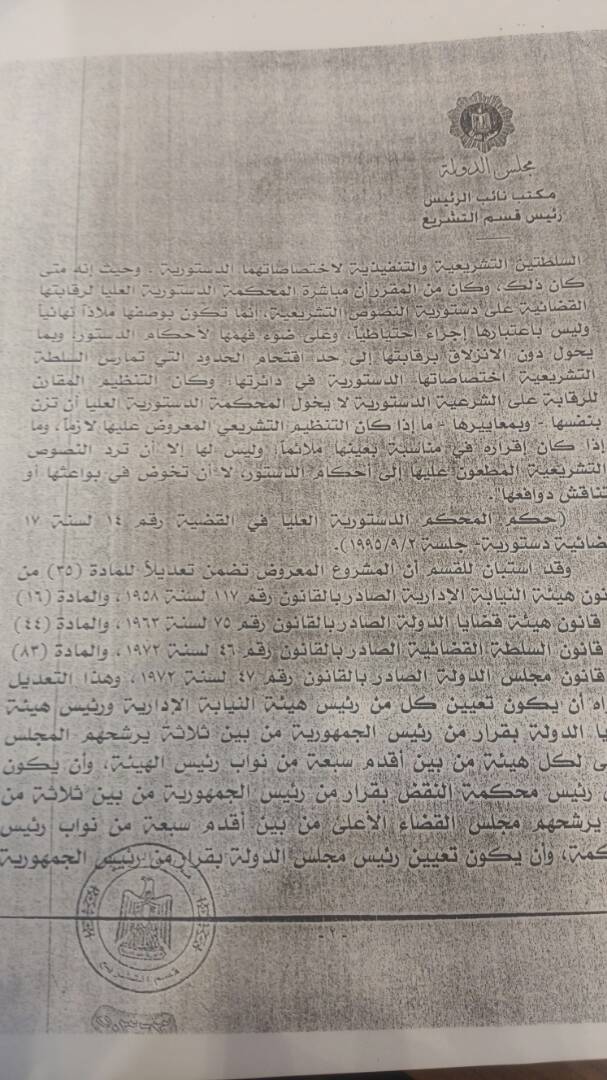 مجلس الدولة
مكتب نائب الرئيس
رئيس قسم التشريع
السلطتين التشريعية والتنفيذية لاختصاصاتهما الدستورية . وحيث إنه متى
كان ذلك، وكان من المقرر أن مباشرة المحكمة الدستورية العليا لرقابتها
القضائية على دستورية النصوص التشريعية، إنما تكون بوصفها ملاذاً نهائياً
وليس باعتبارها إجراء احتياطياً، وعلى ضوء فهمها لأحكام الدستور، وبما
يحول دون الانزلاق برقابتها إلى حد اقتحام الحدود التي تمارس السلطة
التشريعية اختصاصاتها الدستورية في دائرتها، وكان التنظيم المقارن
للرقابة على الشرعية الدستورية لا يخول المحكمة الدستورية العليا أن تزن
بنفسها - وبمعاييرها - ما إذا كان التنظيم التشريعي المعروض عليها لازماً، وما
إذا كان إقراره في مناسبة بعينها ملائماً، وليس لها إلا أن ترد النصوص
التشريعية المطعون عليها إلى أحكام الدستور، لا أن تخوض في بواعثها أو
تناقش دوافعها".
(حكم المحكم الدستورية العليا في القضية رقم ١٤ لسنة ١٧
ضائية دستورية- جلسة ١٩٩٥/٩/٢).
وقد استبان للقسم أن المشروع المعروض تضمن تعديلاً للمادة (٣٥) من
نون هيئة النيابة الإدارية الصادر بالقانون رقم ١١٧ لسنة ١٩٥٨، والمادة (١٦)
قانون هيئة قضايا الدولة الصادر بالقانون رقم ٧٥ لسنة ١٩٦٣، والمادة (٤٤)
قانون السلطة القضائية الصادر بالقانون رقم ٤٦ لسنة ١٩٧٢، والمادة (٨٣)
قانون مجلس الدولة الصادر بالقانون رقم ٤٧ لسنة ١٩٧٢، وهذا التعديل
اه أن يكون تعيين كل من رئيس هيئة النيابة الإدارية ورئيس هيئة
يا الدولة بقرار من رئيس الجمهورية من بين ثلاثة يرشحهم المجلس
ى لكل هيئة من بين أقدم سبعة من نواب رئيس الهيئة، وأن يكون
رئيس محكمة النقض بقرار من رئيس الجمهورية من بين ثلاثة من
يرشحهم مجلس القضاء الأعلى من بين أقدم سبعة من نواب رئيس
كمة، وأن يكون تعيين رئيس مجلس الدولة بقرار من رئيس الجمهورية
-٢-
قسم التشريع